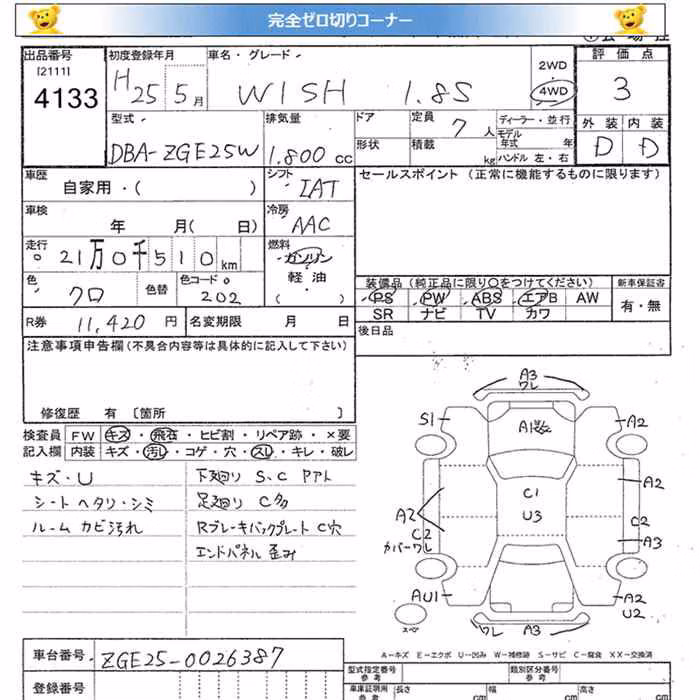 完全ゼロ切りコーナー
出品番号 初度登録年月 車名・グレード 評価点
[2111] 2WD
4133 H 25 5月 WISH 1.8S 4WD 3
型式 排気量 ドア 定員 7 人 ディーラー・並行 外装 内装
モデル年式 年
DBA-ZGE25W 1.800cc 形状 積載 kg ハンドル 左・右 D D
車歴 シフト セールスポイント (正常に機能するものに限ります)
自家用・( ) IAT
車検 冷房
年 月( 日) AAC
走行 燃料
21万0千510km ガソリン
軽・油
色 色替 色コード ( )
クロ 202
装備品 (純正品に限り○をつけてください) 新車保証書
PS PW ABS エアB AW 有・無
SR ナビ TV カワ
R券 11,420 円 名変期限 月 日 後日品
注意事項申告欄 (不具合内容等は具体的に記入して下さい)
修復歴 有 〔箇所 〕
検査員 FW キズ・飛石・ヒビ割・リペア跡・×要
記入欄 内装 キズ・汚レ・コゲ・穴・スレ・キレ・破レ
キズ・U 下廻リ S、C
シート ヘタリ・シミ 足廻リ C多
ルーム カビ汚れ Rブレーキバックプレート C穴
エンドパネル 歪み
A3
ワレ
S1 A1数 A2
A2
C1
A2 U3 C2
C2 A3
カバーワレ
AU1 A2
U2
スペア ワレ A3
A-キズ E-エクボ U-凹み W-補修跡 S-サビ C-腐食 XX-交換済
車台番号 ZGE25-0026387
型式指定番号 類別区分番号
参考 参考
登録番号 車庫証明用 長さ 幅 高さ
参考 cm cm cm